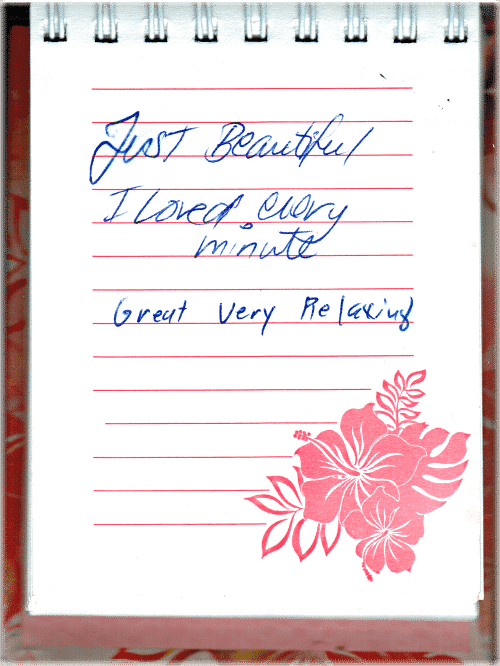 Just Beautiful
I Loved every
minute
Great Very Relaxing